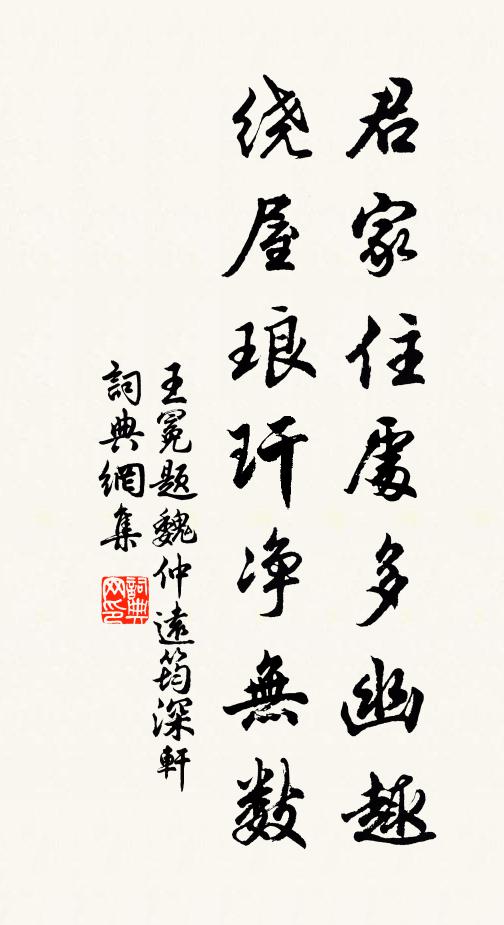 君家住處多幽趣
绕屋琅玕净無数
王冕题魏仲遠筠深軒
詞典網集
詞典